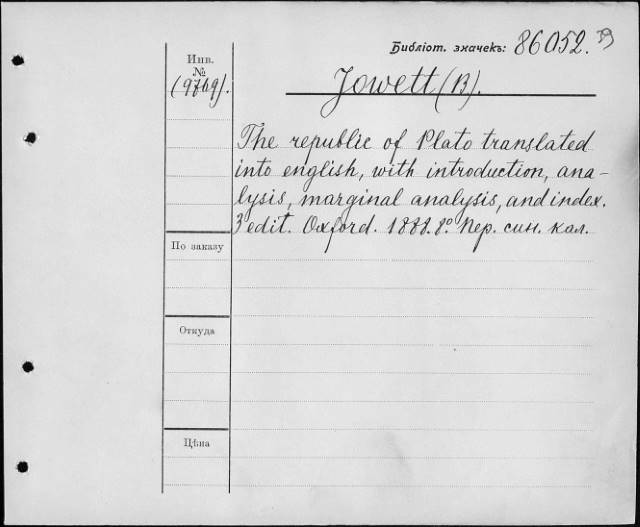 Библіот. значекъ: 86052.
Инв.
№
(9769).
Jowett (B).
The republic of Plato translated
into english, with introduction, ana-
lysis, marginal analysis, and index.
3 edit. Oxford. 1888. 8°. Пер. син. кал.
По заказу
Откуда
Цѣна